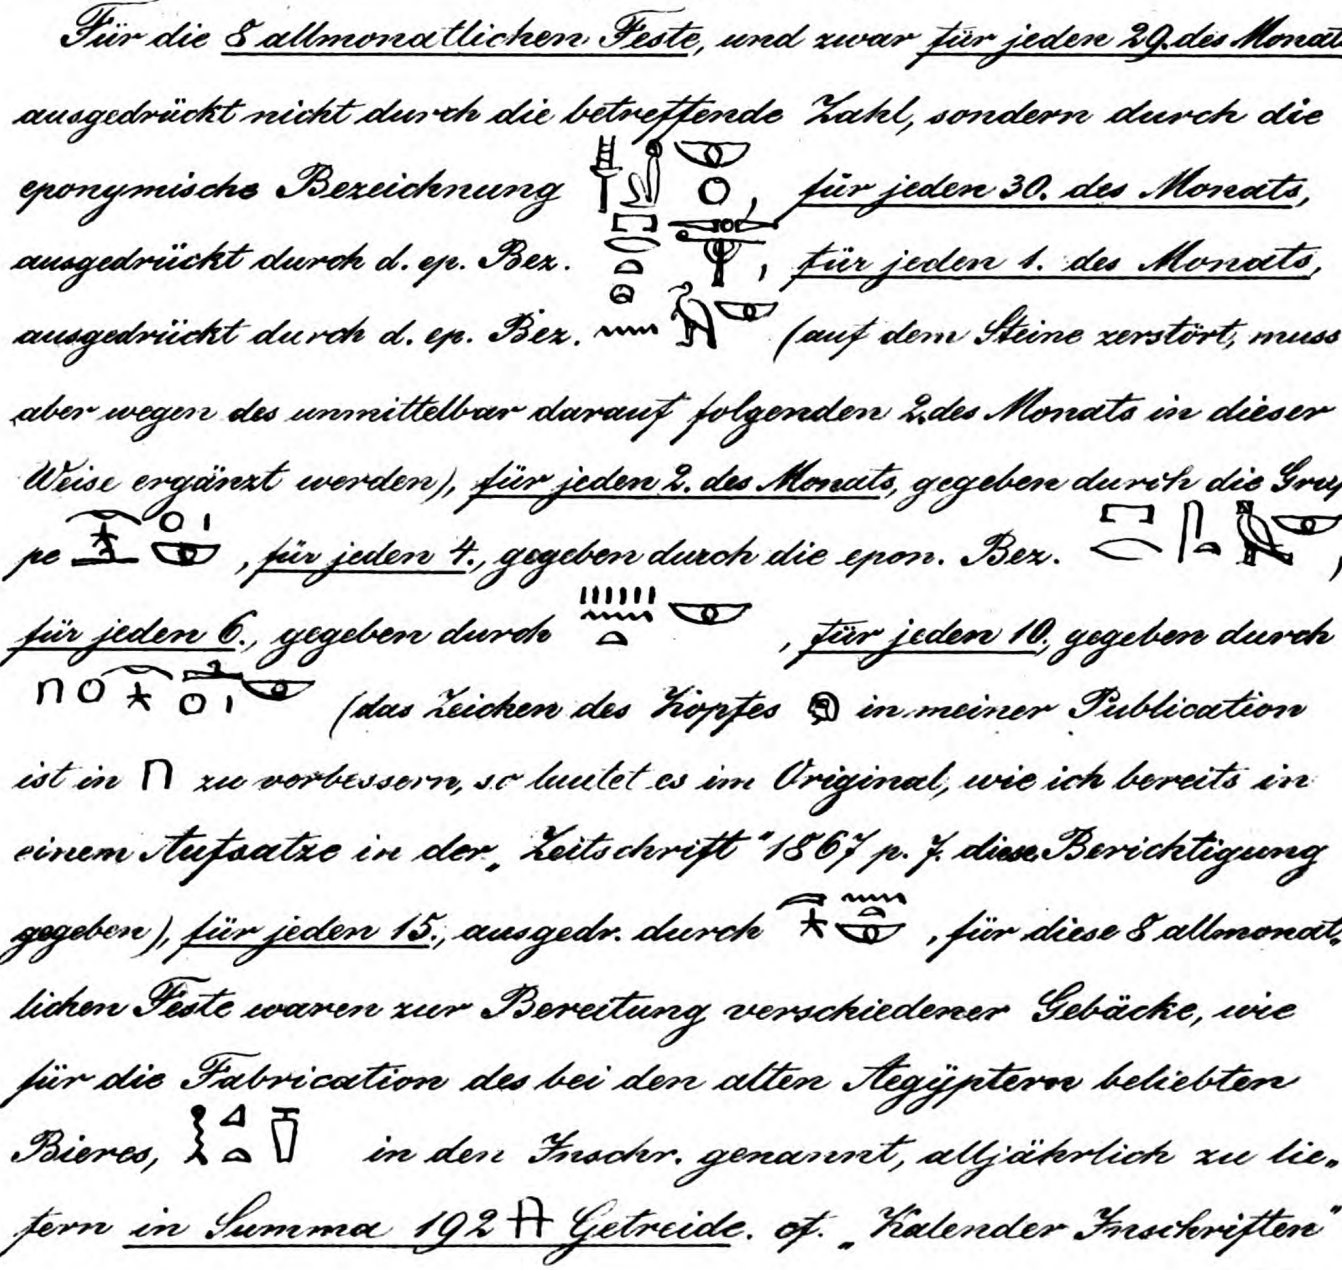 Für die 8 allmonatlichen Feste, und zwar für jeden 29. des Monats
ausgedrückt nicht durch die betreffende Zahl, sondern durch die
eponymische Bezeichnung , für jeden 30. des Monats,
ausgedrückt durch d. ep. Bez. , für jeden 1. des Monats,
ausgedrückt durch d. ep. Bez. (auf dem Steine zerstört, muss
aber wegen des unmittelbar darauf folgenden 2. des Monats in dieser
Weise ergänzt werden), für jeden 2. des Monats, gegeben durch die Grup
pe , für jeden 4., gegeben durch die epon. Bez. ,
für jeden 6., gegeben durch , für jeden 10, gegeben durch
(das Zeichen des Kopfes in meiner Publication
ist in zu verbessern, so lautet es im Original, wie ich bereits in
einem Aufsatze in der „Zeitschrift" 1867 p. 7. diese Berichtigung
gegeben), für jeden 15., ausgedr. durch , für diese 8 allmonat„
lichen Feste waren zur Bereitung verschiedener Gebäcke, wie
für die Fabrication des bei den alten Aegyptern beliebten
Bieres, in den Inschr. genannt, alljährlich zu lie„
fern in Summa 192 Getreide. cf. „Kalender Inschriften"